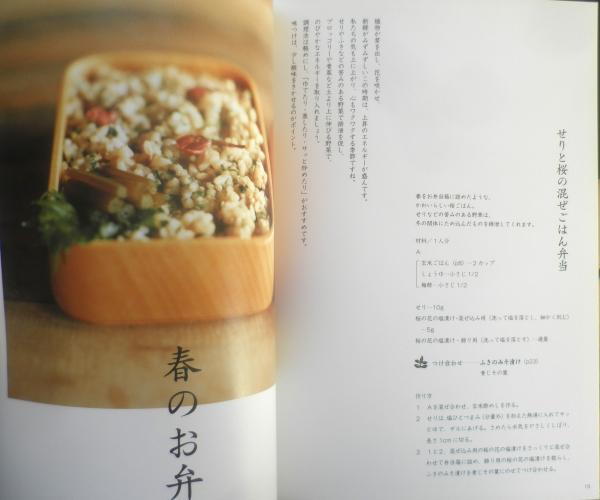 春のお弁
植物が芽を出し、花を咲かせ、
新緑がみずみずしいこの時期は、上昇のエネルギーが盛んです。
私たちの気も上に上がり、心もワクワクする季節ですね。
せりやふきなどの苦みのある野菜で排毒を促し、
ブロッコリーや青菜など土より上に伸びる野菜で、
のびやかなエネルギーを取り入れましょう。
調理法は軽めにし、「ゆでたり・蒸したり・サッと炒めたり」がおすすめです。
味つけは、少し酸味をきかせるのがポイント。
せりと桜の混ぜごはん弁当
春をお弁当箱に詰めたような、
かわいらしい桜ごはん。
せりなどの苦みのある野菜は、
冬の間体にため込んだものを排泄してくれます。
材料/1人分
A
玄米ごはん(p8)…2カップ
しょうゆ…小さじ1/2
梅酢…小さじ1/2
せり…10g
桜の花の塩漬け・混ぜ込み用(洗って塩を落とし、細かく刻む)
…5g
桜の花の塩漬け・飾り用(洗って塩を落とす)…適量
つけ合わせ……ふきのみそ漬け(p23)
青じその葉
作り方
1 Aを混ぜ合わせ、玄米酢めしを作る。
2 せりは、塩ひとつまみ(分量外)を加えた熱湯に入れてサッ
とゆで、ザルにあげる。さめたら水気をやさしくしぼり、
長さ1cmに切る。
3 1と2、混ぜ込み用の桜の花の塩漬けをさっくりと混ぜ合
わせて弁当箱に詰め、飾り用の桜の花の塩漬けを散らし、
ふきのみそ漬けを青じその葉にのせてつけ合わせる。